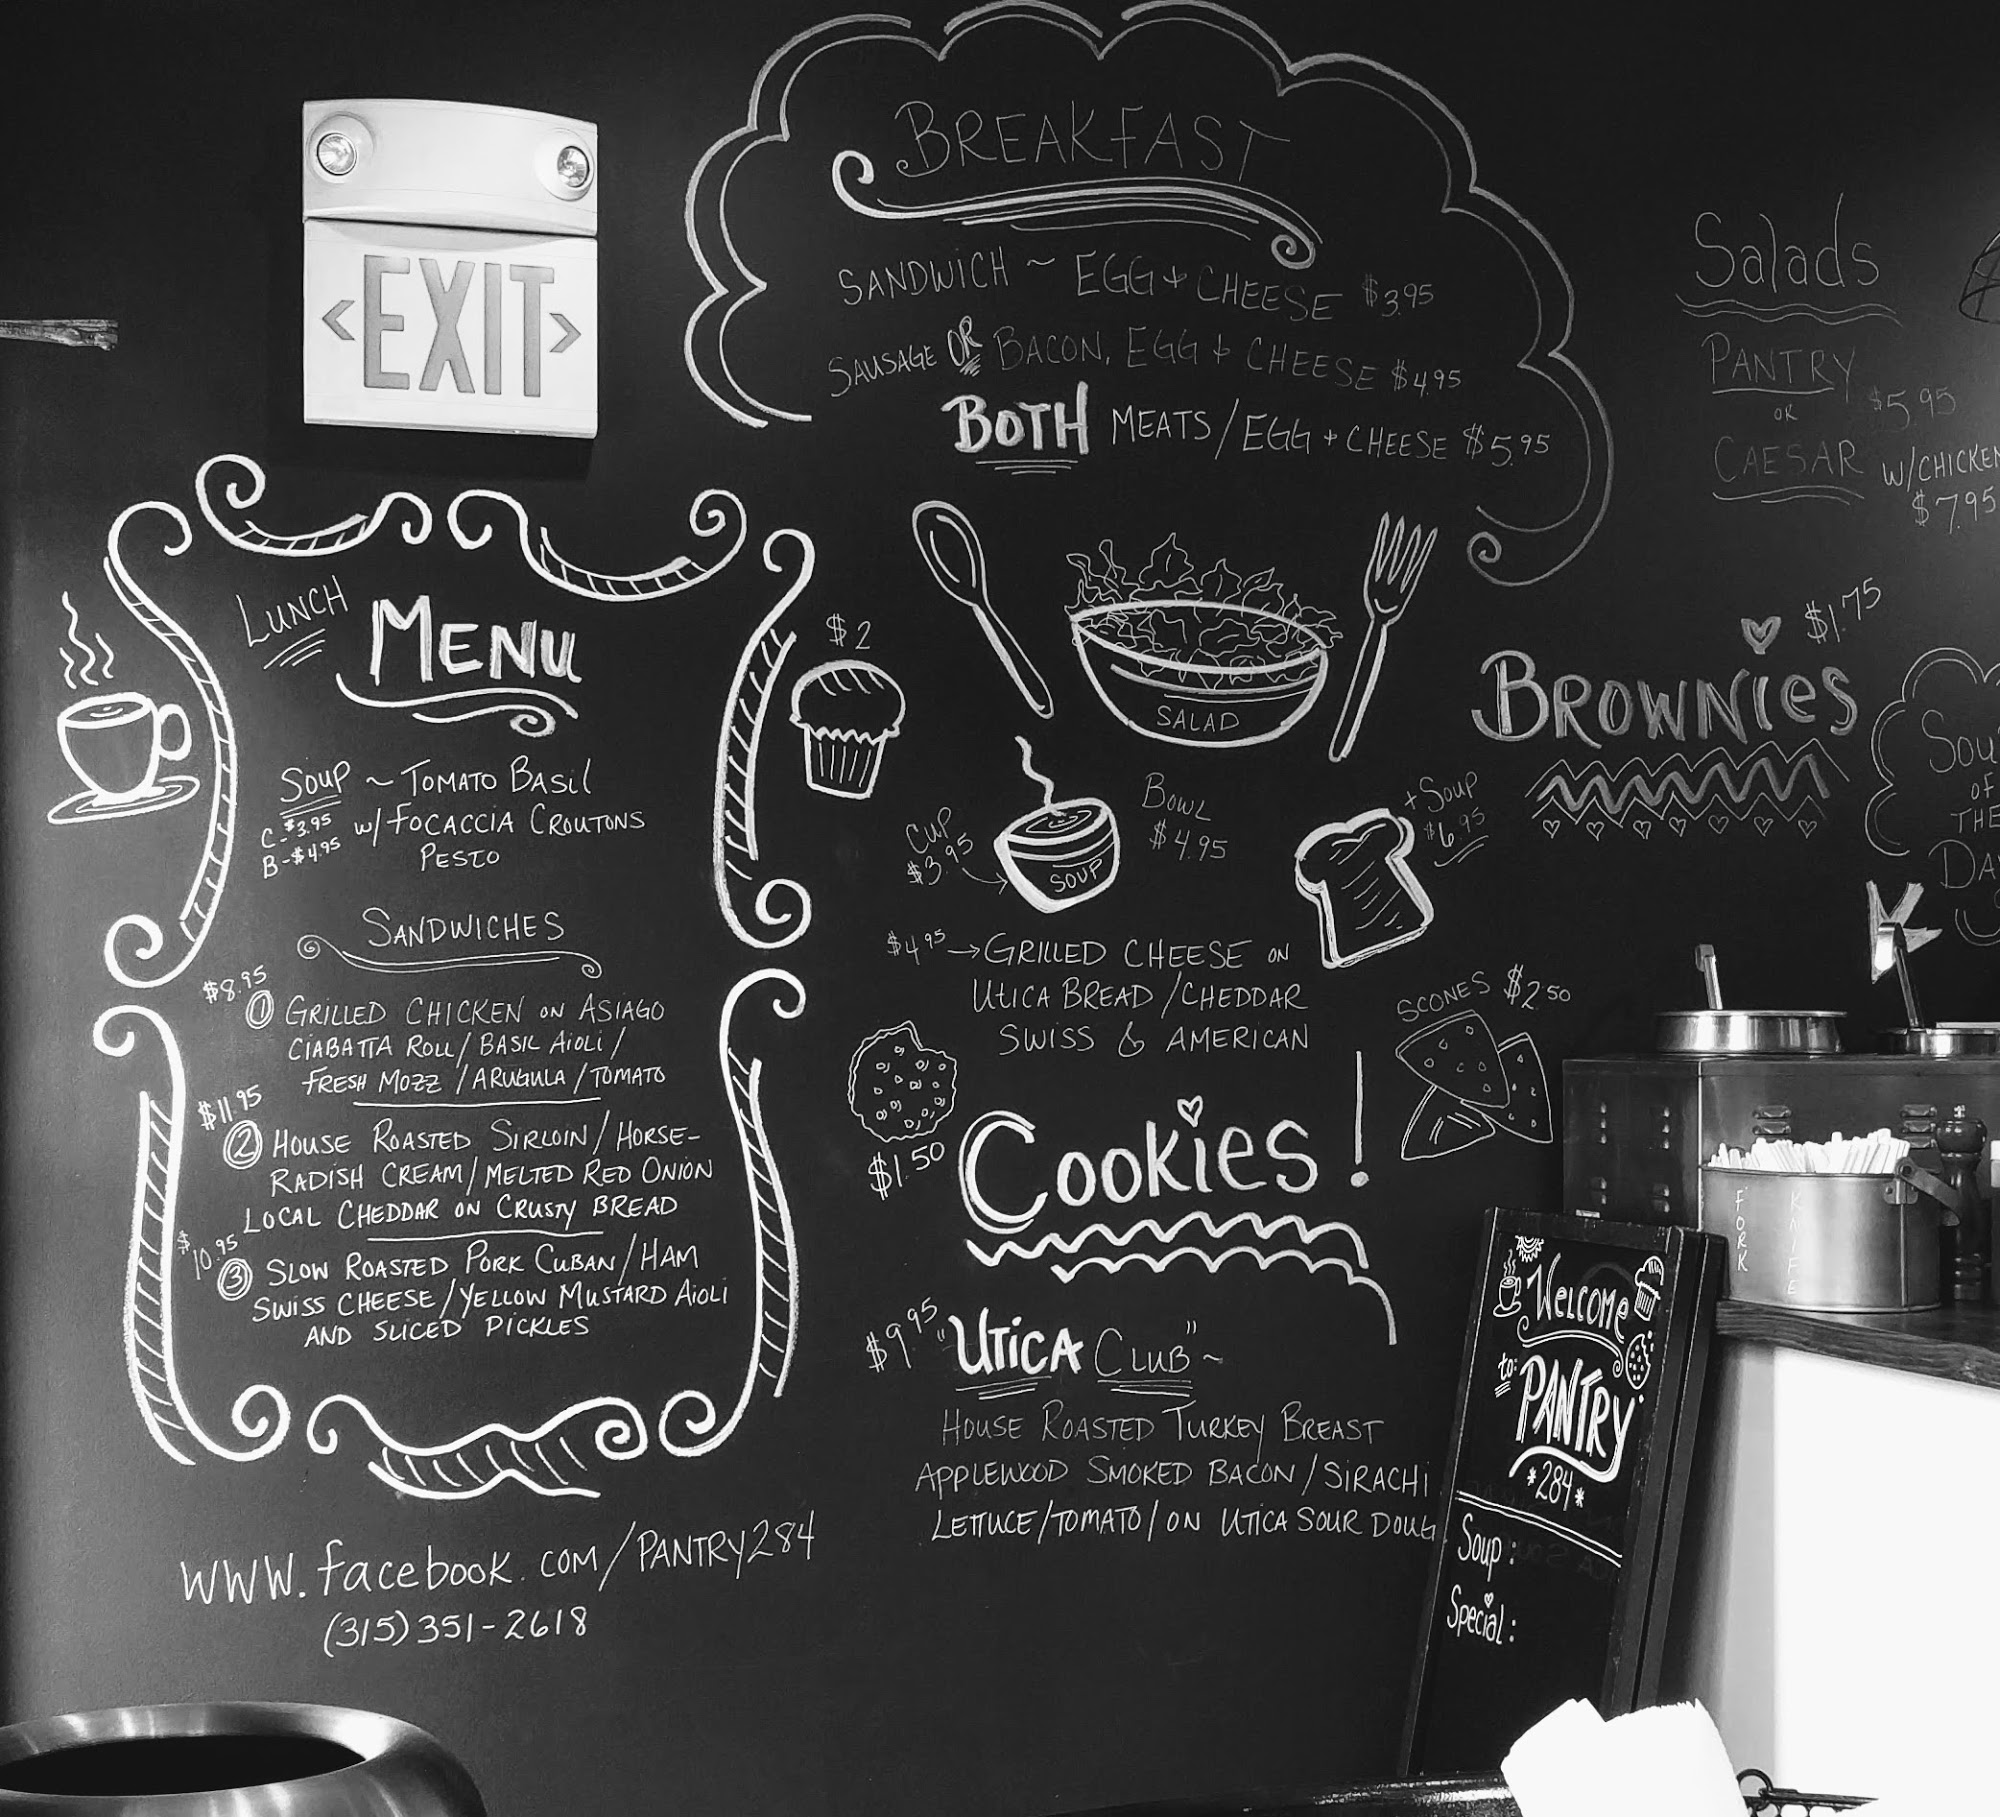 EXIT
BREAKFAST
SANDWICH ~ EGG + CHEESE $3.95
SAUSAGE OR BACON, EGG + CHEESE $4.95
BOTH MEATS / EGG + CHEESE $5.95
Salads
PANTRY
OR
CAESAR
$5.95
W/CHICKEN
$7.95
LUNCH
MENU
SOUP ~ TOMATO BASIL
C-$3.95 W/ FOCACCIA CROUTONS
B-$4.95 PESTO
SANDWICHES
$8.95
1 GRILLED CHICKEN ON ASIAGO
CIABATTA ROLL / BASIL AIOLI /
FRESH MOZZ / ARUGULA / TOMATO
$11.95
2 HOUSE ROASTED SIRLOIN / HORSE-
RADISH CREAM / MELTED RED ONION
LOCAL CHEDDAR ON CRUSTY BREAD
$10.95
3 SLOW ROASTED PORK CUBAN / HAM
SWISS CHEESE / YELLOW MUSTARD AIOLI
AND SLICED PICKLES
WWW.facebook.COM/PANTRY284
(315)351-2618
$2
SALAD
CUP
$3.95
SOUP
BOWL
$4.95
+ SOUP
$6.95
$4.95 → GRILLED CHEESE ON
UTICA BREAD / CHEDDAR
SWISS & AMERICAN
$1.75
BROWNIES
SOU
OF
THE
DA
SCONES $2.50
$1.50
COOKIES!
$9.95 "UTICA CLUB" ~
HOUSE ROASTED TURKEY BREAST
APPLEWOOD SMOKED BACON / SIRACHI
LETTUCE / TOMATO / ON UTICA SOUR DOUG
FORK
KNIFE
WELCOME
to:
PANTRY
*284*
Soup:
Special: